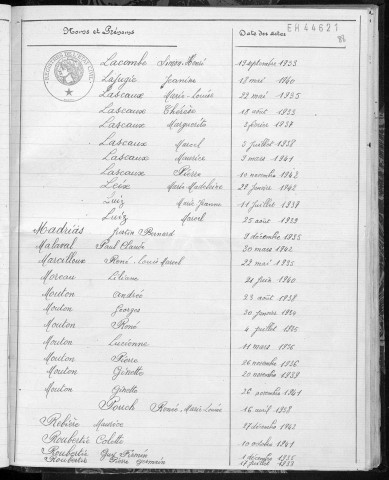 Noms et Prénoms Date des actes
EH 44621
Lacombe Simon-Henri 19 septembre 1933
Lafugie Jeanine 17 mai 1940
Lascaux Marie-Louise 22 mai 1935
Lascaux Thérèse 18 août 1933
Lascaux Marguerite 2 février 1937
Lascaux Marcel 3 juillet 1938
Lascaux Maurice 3 mars 1941
Lascaux Pierre 10 novembre 1942
Marie Madeleine 28 janvier 1942
Luiz Marie Jeanne 11 juillet 1938
Luiz Marcel 25 août 1939
Madrias Bernard 9 décembre 1935
Malaval Paul Claude 30 mars 1942
Marcilloux René-Louis Marcel 22 mai 1935
Moreau Liliane 21 juin 1940
Mouton Andrée 23 août 1938
Mouton Georges 20 janvier 1934
Mouton René 4 juillet 1936
Mouton Lucienne 11 mars 1936
Mouton Pierre 26 novembre 1936
Mouton Ginette 20 novembre 1939
Mouton Ginette 26 novembre 1941
Pouch Renée Marie Louise 16 avril 1938
Rebière Maurice 17 décembre 1942
Roubertie Colette 10 octobre 1941
Roubertie Guy Firmin 1 décembre 1935
Roubertie Pierre Germain 17 juillet 1933